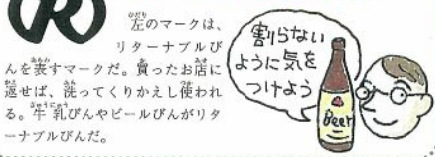 左のマークは、
リターナブルび
んを表すマークだ。買ったお店に
返せば、洗ってくりかえし使われ
る。牛乳びんやビールびんがリタ
ーナブルびんだ。
割らない
ように気を
つけよう
Beer